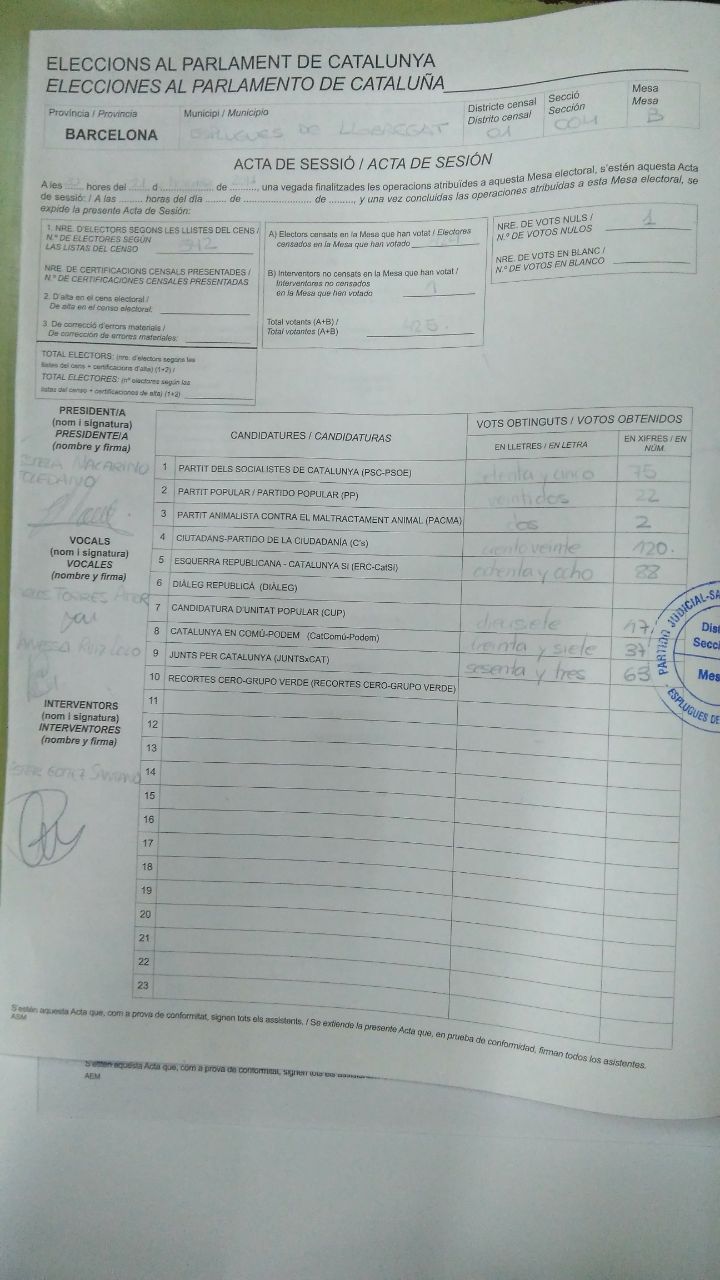 ELECCIONS AL PARLAMENT DE CATALUNYA
ELECCIONES AL PARLAMENTO DE CATALUÑA
Província / Provincia
BARCELONA
Municipi / Municipio
ESPLUGUES DE LLOBREGAT
Districte censal
Distrito censal
01
Secció
Sección
004
Mesa
Mesa
B
ACTA DE SESSIÓ / ACTA DE SESIÓN
A les hores del d de , una vegada finalitzades les operacions atribuïdes a aquesta Mesa electoral, s'estén aquesta Acta
de sessió: / A las ........ horas del día ....... de .................... de ........, y una vez concluidas las operaciones atribuidas a esta Mesa electoral, se
expide la presente Acta de Sesión:
1. NRE. D'ELECTORS SEGONS LES LLISTES DEL CENS /
N.º DE ELECTORES SEGÚN
LAS LISTAS DEL CENSO
NRE. DE CERTIFICACIONS CENSALS PRESENTADES /
N.º DE CERTIFICACIONES CENSALES PRESENTADAS
2. D'alta en el cens electoral /
De alta en el censo electoral:
3. De correcció d'errors materials /
De corrección de errores materiales:
TOTAL ELECTORS: (nre. d'electors segons les
llistes del cens + certificacions d'alta) (1+2) /
TOTAL ELECTORES: (nº electores según las
listas del censo + certificaciones de alta) (1+2)
A) Electors censats en la Mesa que han votat / Electores
censados en la Mesa que han votado
B) Interventors no censats en la Mesa que han votat /
Interventores no censados
en la Mesa que han votado
1
Total votants (A+B) /
Total votantes (A+B)
426
NRE. DE VOTS NULS /
N.º DE VOTOS NULOS
1
NRE. DE VOTS EN BLANC /
N.º DE VOTOS EN BLANCO
PRESIDENT/A
(nom i signatura)
PRESIDENTE/A
(nombre y firma)
NACARINO
TOLEDANO
VOCALS
(nom i signatura)
VOCALES
(nombre y firma)
TORRES
RUIZ
INTERVENTORS
(nom i signatura)
INTERVENTORES
(nombre y firma)
CANDIDATURES / CANDIDATURAS
VOTS OBTINGUTS / VOTOS OBTENIDOS
EN LLETRES / EN LETRA
EN XIFRES / EN NÚM.
1 PARTIT DELS SOCIALISTES DE CATALUNYA (PSC-PSOE) setenta y cinco 75
2 PARTIT POPULAR / PARTIDO POPULAR (PP) veintidos 22
3 PARTIT ANIMALISTA CONTRA EL MALTRACTAMENT ANIMAL (PACMA) dos 2
4 CIUTADANS-PARTIDO DE LA CIUDADANÍA (C's) ciento veinte 120.
5 ESQUERRA REPUBLICANA - CATALUNYA SÍ (ERC-CatSí) ochenta y ocho 88
6 DIÀLEG REPUBLICÀ (DIÀLEG)
7 CANDIDATURA D'UNITAT POPULAR (CUP) diecisiete 17
8 CATALUNYA EN COMÚ-PODEM (CatComú-Podem) treinta y siete 37
9 JUNTS PER CATALUNYA (JUNTSxCAT) sesenta y tres 63
10 RECORTES CERO-GRUPO VERDE (RECORTES CERO-GRUPO VERDE)
11
12
13
14
15
16
17
18
19
20
21
22
23
PARTIDO JUDICIAL-SA
Dis
Secc
Mes
ESPLUGUES DE
S'estén aquesta Acta que, com a prova de conformitat, signen tots els assistents. / Se extiende la presente Acta que, en prueba de conformidad, firman todos los asistentes.
ASM
S'estén aquesta Acta que, com a prova de conformitat, signen tots els
AEM